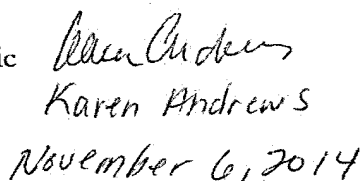 ic Karen Andrews
Karen Andrews
November 6, 2014